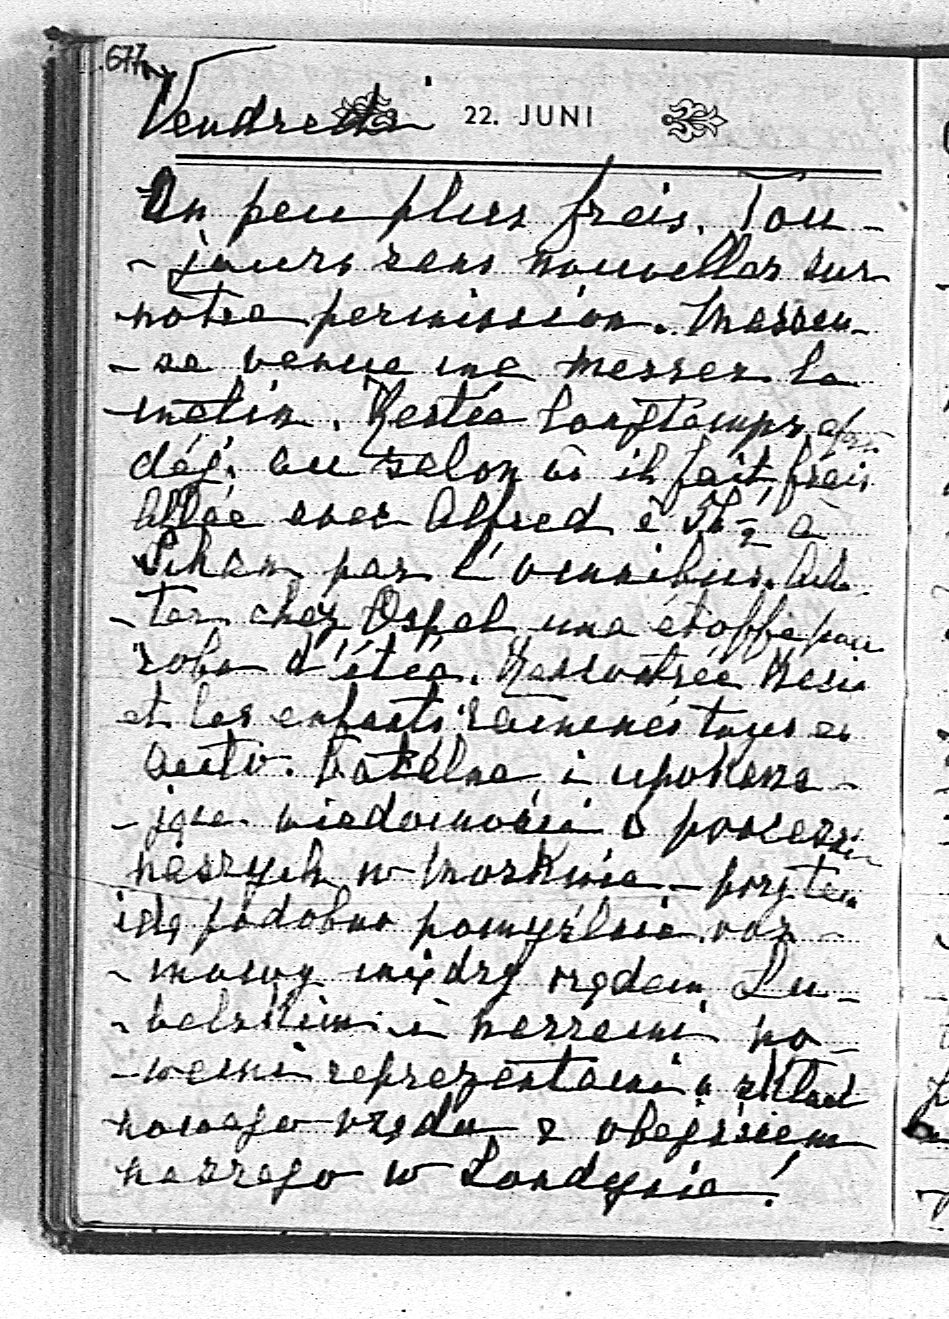 677
Vendredi 22. JUNI
Un peu plus frais. Tou-
- jours sans nouvelles sur
notre permission. Masseu-
- se venue me masser le
matin. Restée longtemps apr.
déj. au salon où il fait frais
Allée avec Alfred à
par l'omnibus. Ache-
- ter chez Ospel une étoffe pour
robe d'étée. Rencontrée Resia
et les enfants; ramenés tous en
auto. Fatalne i upokarza-
- jące wiadomości o procesie
naszych w Moskwie - przytem
idą podobno pomyślnie roz-
- mowy między rządem Lu-
- belskim i naszemi no-
- wemi reprezentami o skład
nowego rządu z obejściem
naszego w Londynie!